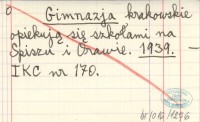 Gimnazja krakowskie
opiekują się szkołami na
Spiszu i Orawie. 1939. —
IKC nr 170.